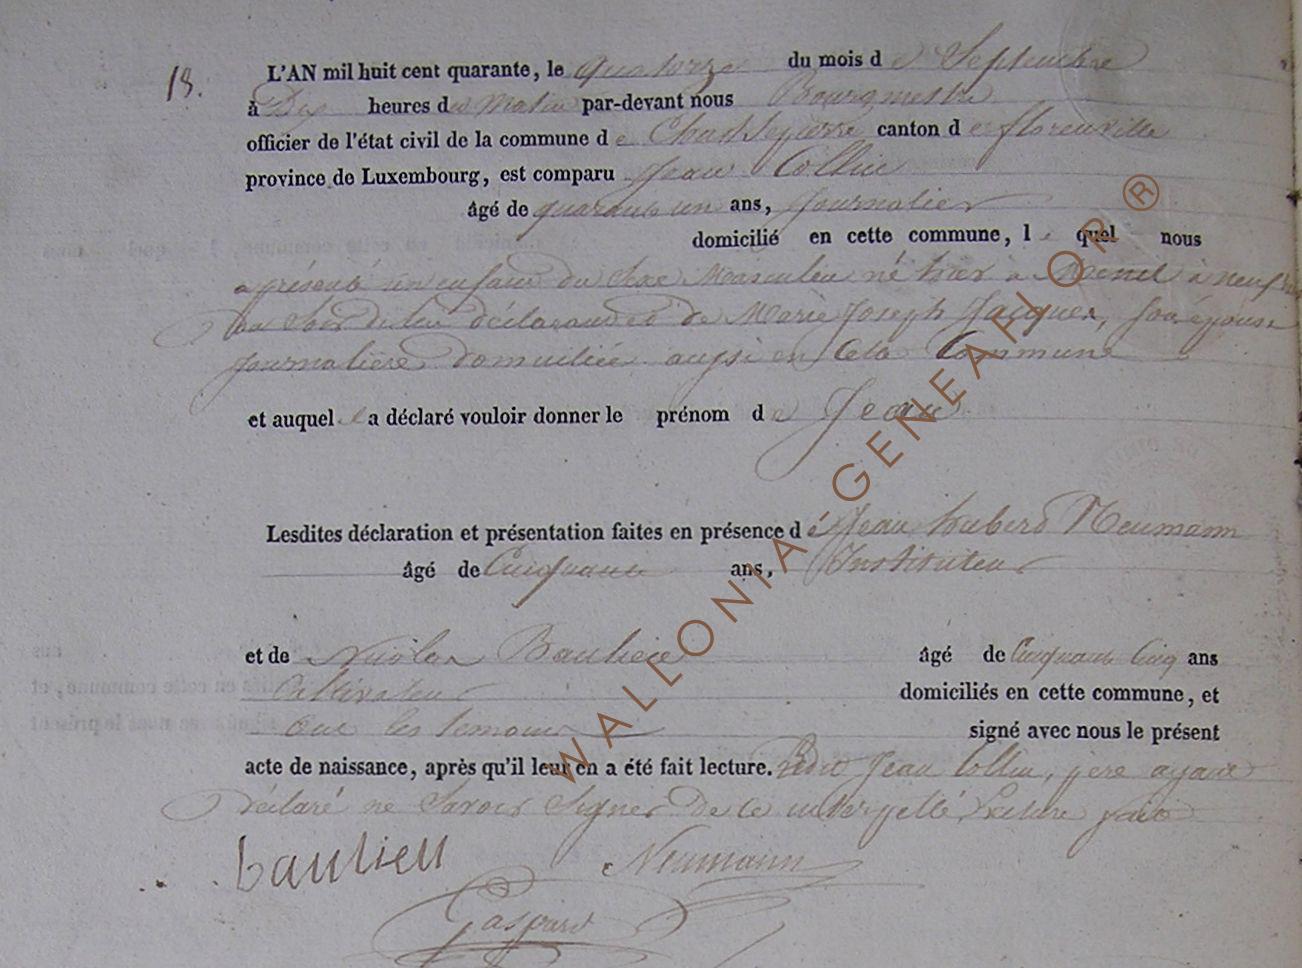 18.
L'AN mil huit cent quarante, le quatorze du mois de Septembre
à Dix heures du Matin par-devant nous Bourgmestre
officier de l'état civil de la commune de Chassepierre canton de florenville
province de Luxembourg, est comparu Jean Collin
âgé de quarante un ans, Journalier
domicilié en cette commune, le quel nous
a présenté un enfant du Sexe Masculin né hier à à neuf
du Soir de lui déclarant et de Marie Joseph Jacques, Son épouse
Journalière domiciliée aussi en Cette Commune
et auquel il a déclaré vouloir donner le prénom de Jean
Lesdites déclaration et présentation faites en présence de Jean hubert Neumann
âgé de Cinquante ans, Instituteur
et de Nicolas Baulieu âgé de Cinquante Cinq ans
Cultivateur domiciliés en cette commune, et
ont les temoins signé avec nous le présent
acte de naissance, après qu'il leur en a été fait lecture. Ledit Jean Collin, père ayant
déclaré ne Savoir Signer de ce interpellé, Lecture faite
baulieu Neumann
Gaspard
WALLONIA-GENEAFLOR ®